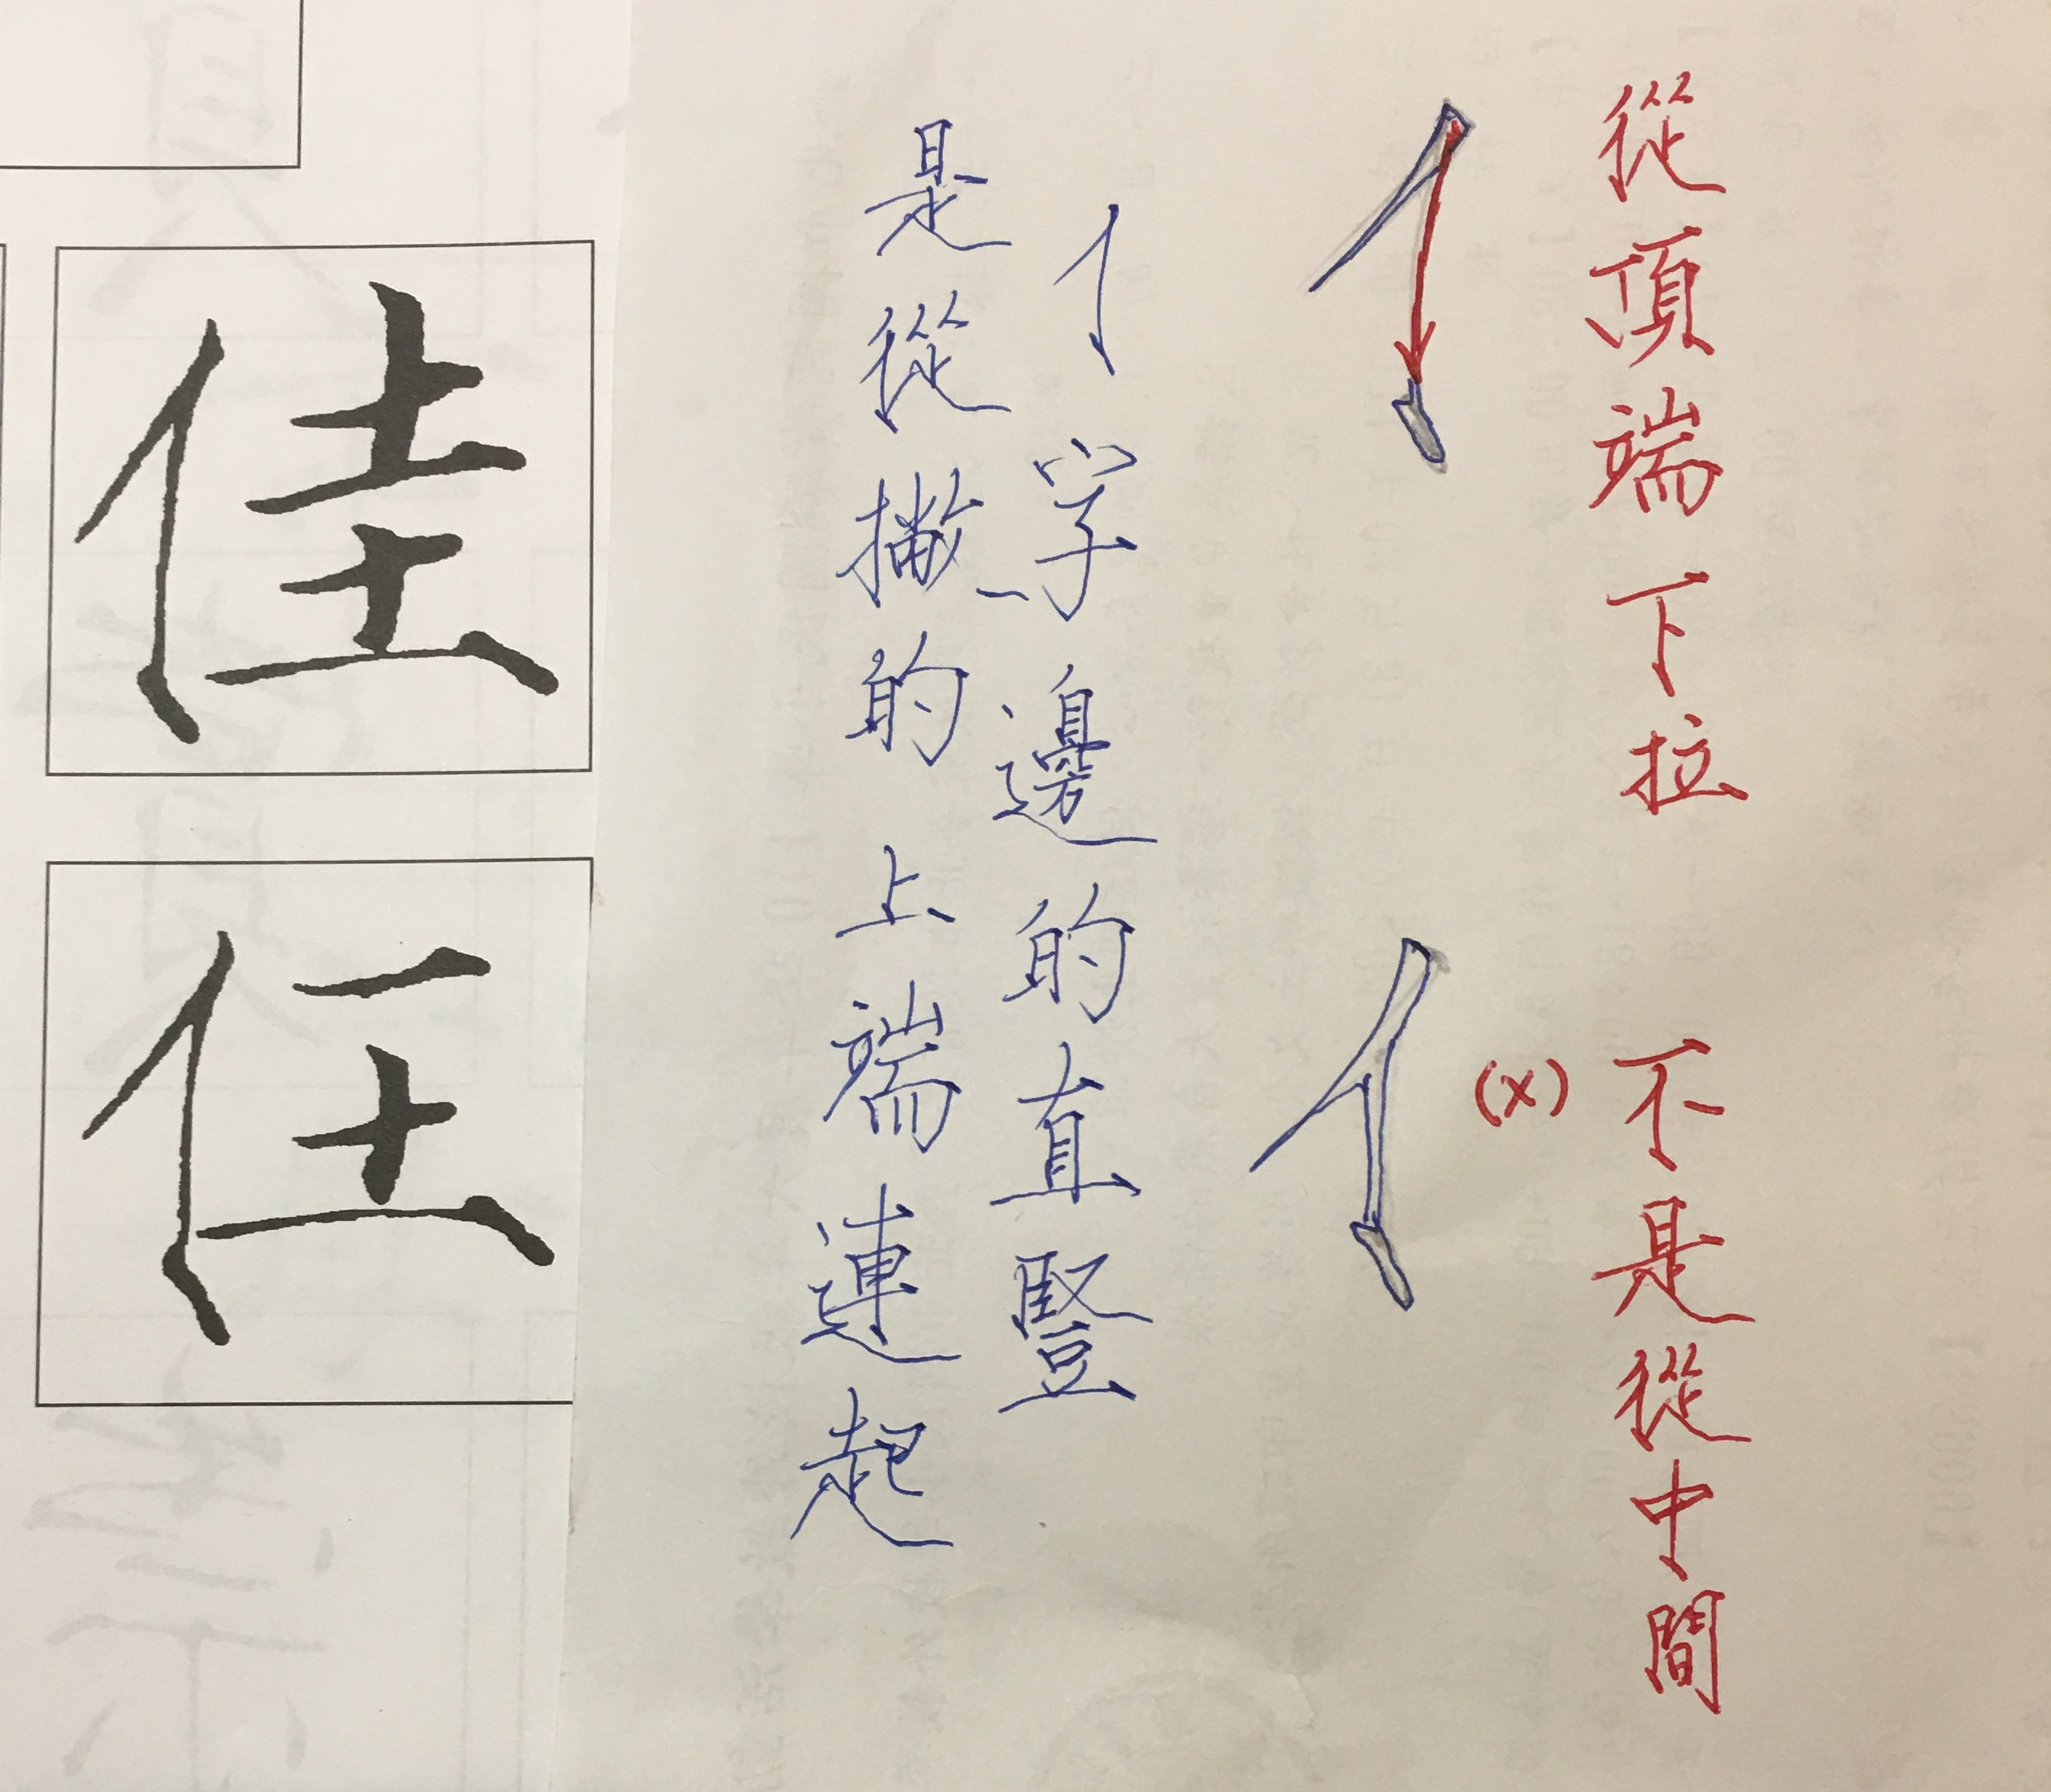 從頂端下拉
不是從中間
(x)
亻字邊的直豎
是從撇的上端連起
佳
任